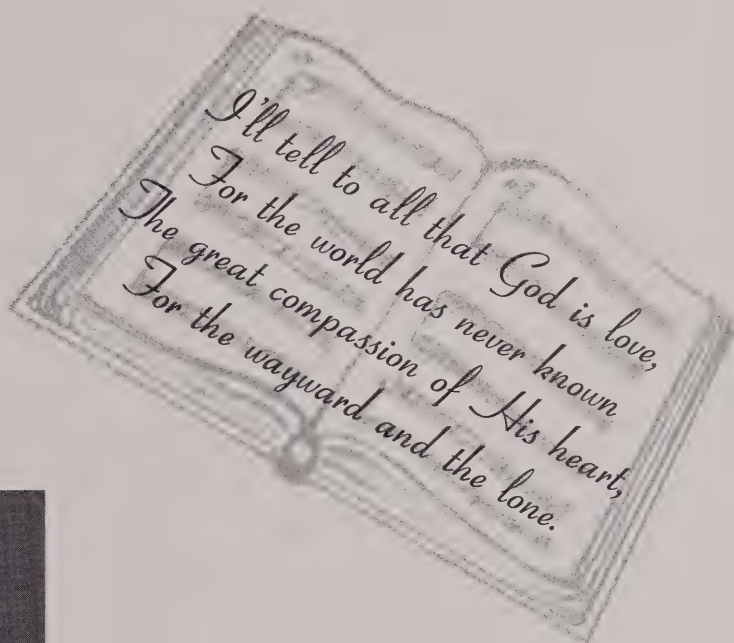 I'll tell to all that God is love,
For the world has never known
The great compassion of His heart,
For the wayward and the lone.